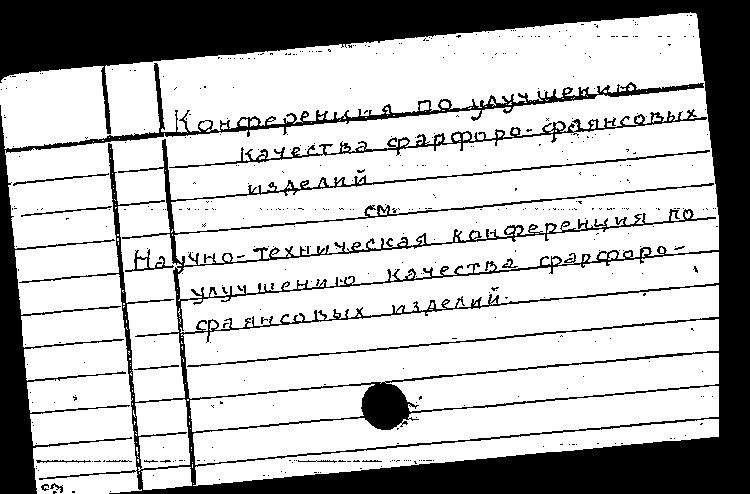 Конференция по улучшению
качества фарфоро-фаянсовых
изделий
см.
Научно-техническая конференция по
улучшению качества фарфоро-
фаянсовых изделий.